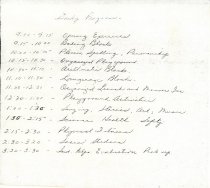 Daily Program
9:00 - 9:15 - Opening Exercises
9:15 - 10:00 - Reading Blocks
10:00 - 10:15 - Phonics Spelling, Penmanship
10:15 - 10:30 - Organized Playground
10:30 - 11:10 - Arithmetic Blocks
11:10 - 11:30 - Language Blocks
11:30 - 12:30 - Organized Lunch and Noon
12:30 - 1:00 - Playground Activities
1:00 - 1:30 - Singing, Stories, Art, Music
1:30 - 2:15 - Science Health Safety
2:15 - 2:30 - Physical
2:30 - 3:20 - Social Studies
3:20 - 3:30 - Evaluation Pick up